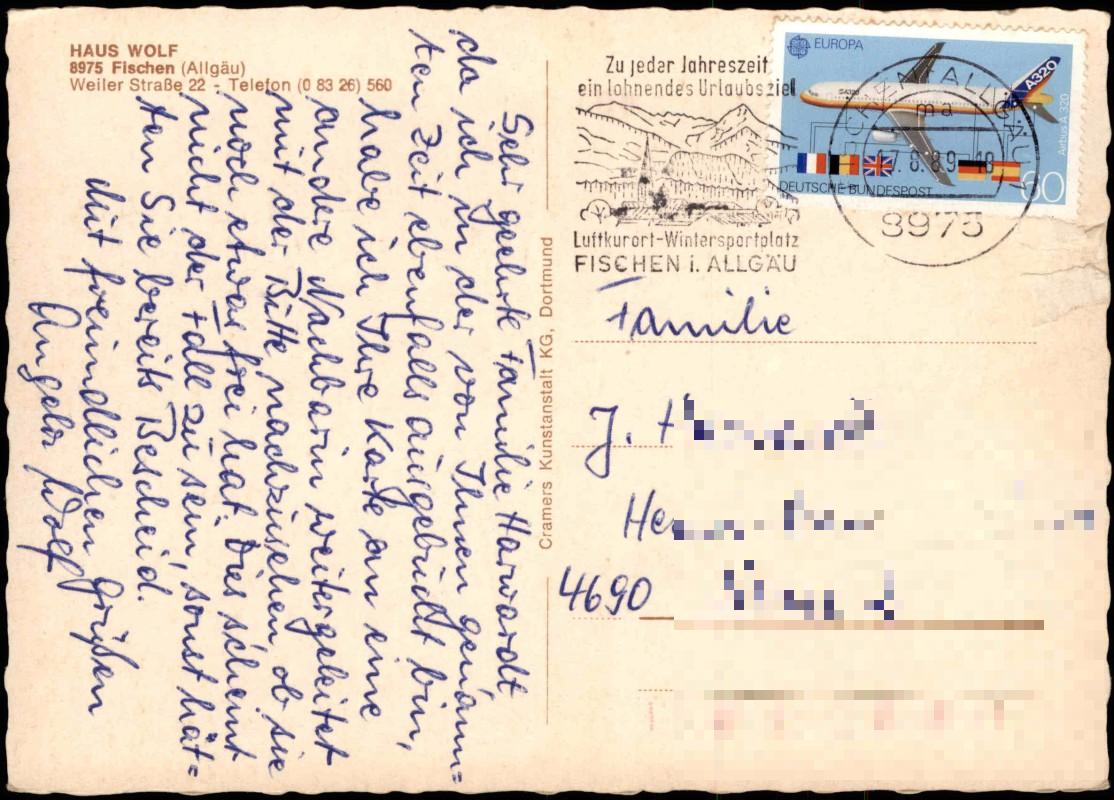 HAUS WOLF
8975 Fischen (Allgäu)
Weiler Straße 22 - Telefon (0 83 26) 560
Sehr geehrte Familie Harwardt
da ich in der von Ihnen genann=
ten Zeit ebenfalls ausgebucht bin,
habe ich Ihre Karte an eine
andere Nachbarin weitergeleitet
mit der Bitte nachzusehen ob sie
noch etwas frei hat. Dies scheint
nicht der Fall zu sein, sonst hät=
ten Sie bereits Bescheid.
Mit freundlichen Grüßen
Angela Wolf
Cramers Kunstanstalt KG, Dortmund
Zu jeder Jahreszeit
ein lohnendes Urlaubsziel
Luftkurort-Wintersportplatz
FISCHEN i. ALLGÄU
EUROPA
A320
Airbus A 320
DEUTSCHE BUNDESPOST
60
FISCHEN i ALLGÄU
ma
17.8.89-18
8975
Familie
J. H
He
4690